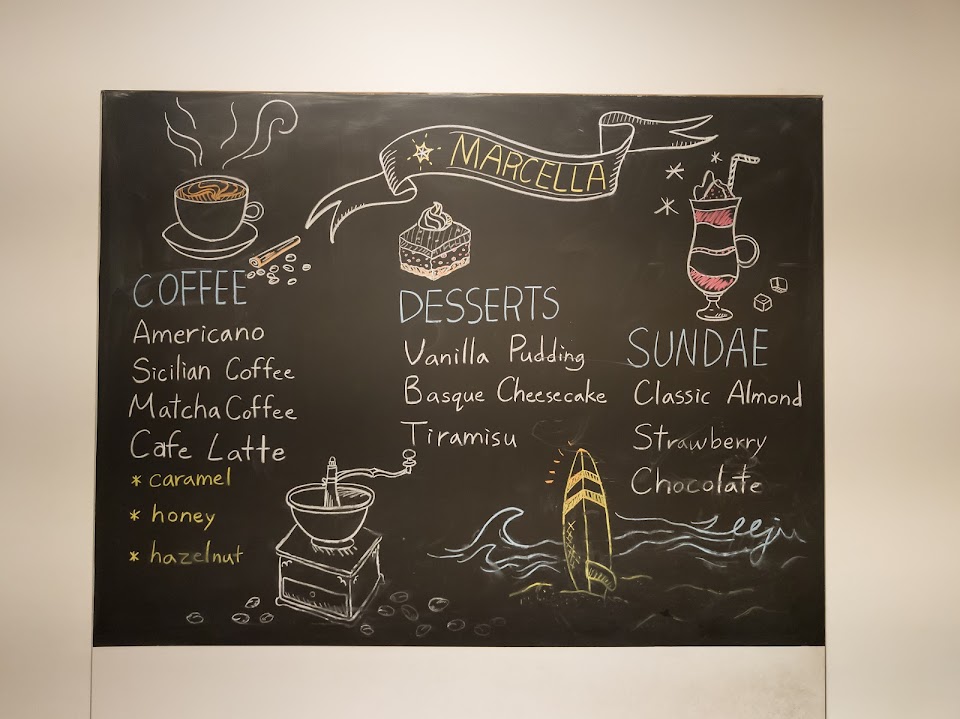 MARCELLA
COFFEE
Americano
Sicilian Coffee
Matcha Coffee
Cafe Latte
* caramel
* honey
* hazelnut
DESSERTS
Vanilla Pudding
Basque Cheesecake
Tiramisu
SUNDAE
Classic Almond
Strawberry
Chocolate